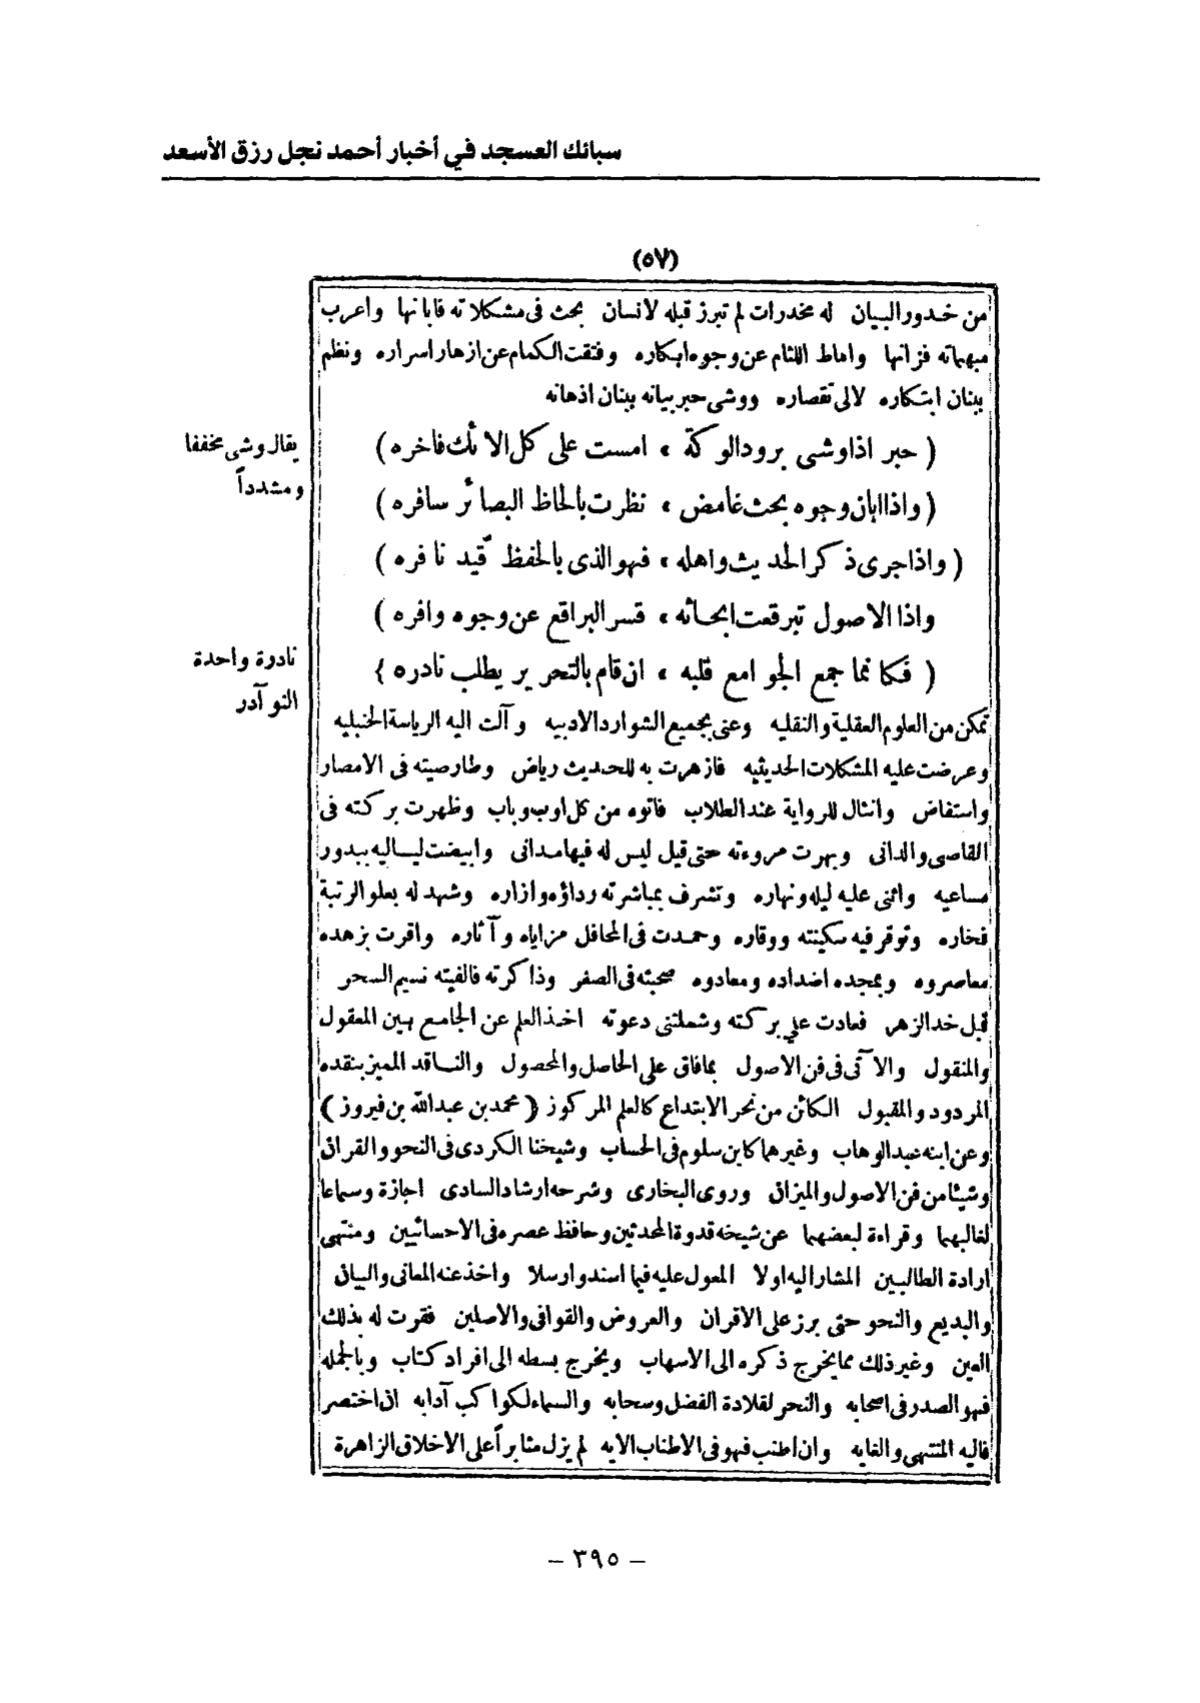 سبائك العسجد في أخبار أحمد نجل رزق الأسعد
(٥٧)
من خدور البيان له مخدرات لم تبرز قبله لانسان بحث فى مشكلاته فابانها واعرب
مبهماته فزانها واماط اللثام عن وجوه ابكاره وفتقت الكمام عن ازهار اسراره ونظم
ببنان ابتكاره لالى تقصاره ووشى حبر بيانه ببنان اذهانه
( حبر اذا وشى برود الوكة ، امست على كل الائك فاخره )
يقال وشى مخففا
ومشدداً
( واذا ابان وجوه بحث غامض ، نظرت بالحاظ البصائر سافره )
( واذا جرى ذكر الحديث واهله ، فهو الذى بالحفظ قيد نافره )
واذا الاصول تبرقعت ابحاثه ، قسر البراقع عن وجوه وافره )
( فكانما جمع الجوامع قلبه ، ان قام بالتحرير يطلب نادره }
نادرة واحدة
النوآدر
تمكن من العلوم العقلية والنقليه وعنى بجميع الشوارد الادبيه وآلت اليه الرياسة الحنبليه
وعرضت عليه المشكلات الحديثيه فازهرت به للحديث رياض وطار صيته فى الامصار
واستفاض وانثال للرواية عند الطلاب فاتوه من كل اوب وباب وظهرت بركته فى
القاصى والدانى وبهرت مروءته حتى قيل ليس له فيها مدانى وابيضت لياليه ببدور
مساعيه واثنى عليه ليله ونهاره وتشرف بمباشرته رداؤه وازاره وشهد له بعلو الرتبة
فخاره وتوقر فيه سكينته ووقاره وحمدت فى المحافل مزاياه وآثاره واقرت بزهده
معاصروه وبمجده اضداده ومعادوه صحبته فى الصفر وذاكرته فالفيته نسيم السحر
قبل خد الزهر فعادت على بركته وشملتنى دعوته اخذ العلم عن الجامع بين المعقول
والمنقول والآتى فى فن الاصول بمافاق على الحاصل والمحصول والناقد المميز بنقده
المردود والمقبول الكائن من نحر الابتداع كالعلم المركوز ( محمد بن عبدالله بن فيروز )
وعن ابنه عبد الوهاب وغيرهما كابن سلوم فى الحساب وشيخنا الكردى فى النحو والقران
وشيئا من فن الاصول والميزان وروى البخارى وشرحه ارشاد السادى اجازة وسماعا
لغالبهما وقراءة لبعضهما عن شيخه قدوة المحدثين وحافظ عصره فى الاحسائيين ومنتهى
ارادة الطالبين المشار اليه اولا المعول عليه فيما اسند وارسلا واخذ عنه المعانى والبيان
والبديع والنحو حتى برز على الاقران والعروض والقوافى والاصلين فقرت له بذلك
العين وغير ذلك مما يخرج ذكره الى الاسهاب ويخرج بسطه الى افراد كتاب وبالجمله
فهو الصدر فى اصحابه والنحر لقلادة الفضل وسحابه والسماء لكواكب آدابه ان اختصر
فاليه المنتهى والغايه وان اطنب فهو فى الاطناب الايه لم يزل مثابراً على الاخلاق الزاهرة
– ٣٩٥ –